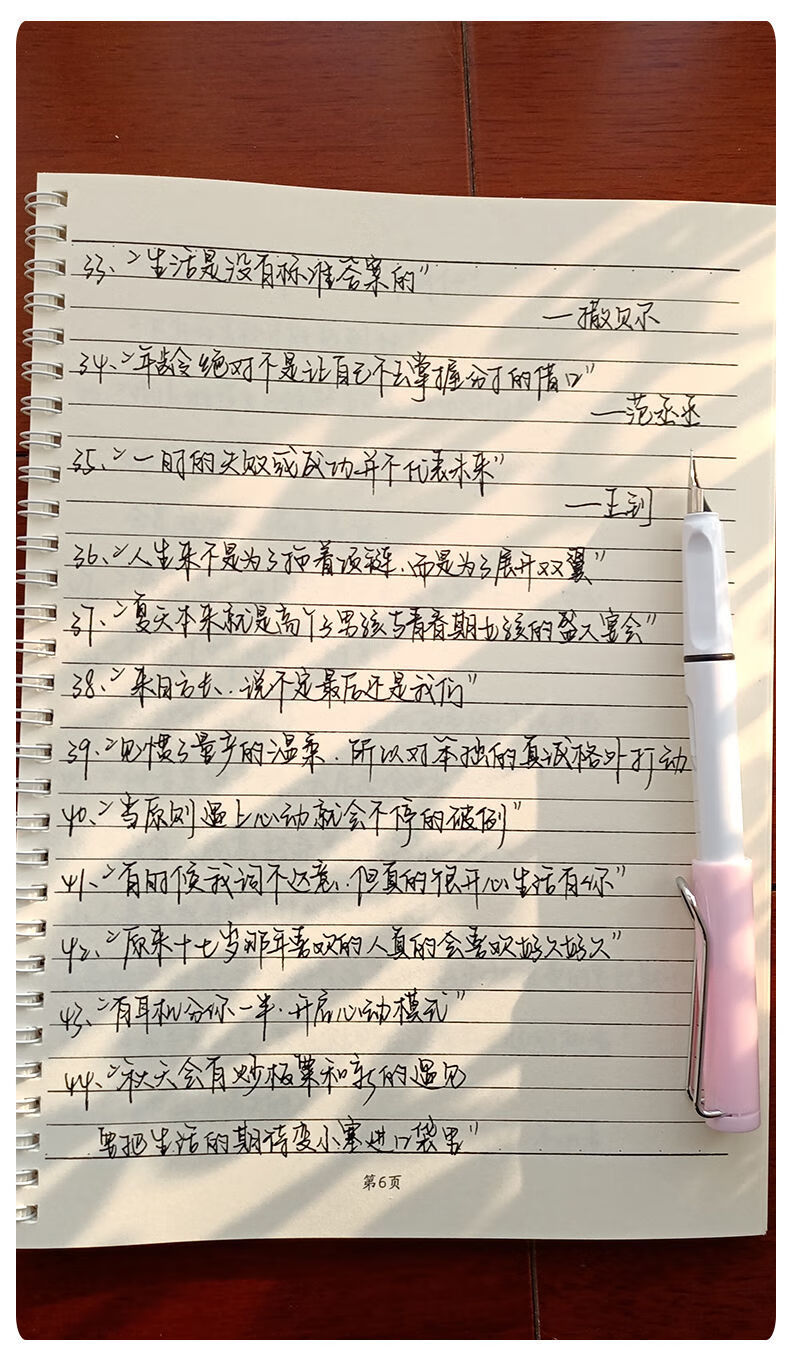 33、“生活是没有标准答案的”
—撒贝尔
34、“年龄绝对不是让自己不去掌握分寸的借口”
—范丞丞
35、“一时的失败或成功并不代表未来”
—王钊
36、“人生来不是为了拖着锁链.而是为了展开双翼”
37、“夏天本来就是高个子男孩与青春期女孩的盛大宴会”
38、“来日方长.说不定最后还是我们”
39、“见惯了量产的温柔.所以对笨拙的真诚格外打动
40、“当原则遇上心动就会不停的破例”
41、“有时候我词不达意.但真的很开心生活有你”
42、“原来十七岁那年喜欢的人真的会喜欢好久好久”
43、“有耳机分你一半.开启心动模式”
44、“秋天会有炒板栗和新的遇见
要把生活的期待变小塞进口袋里”
第6页